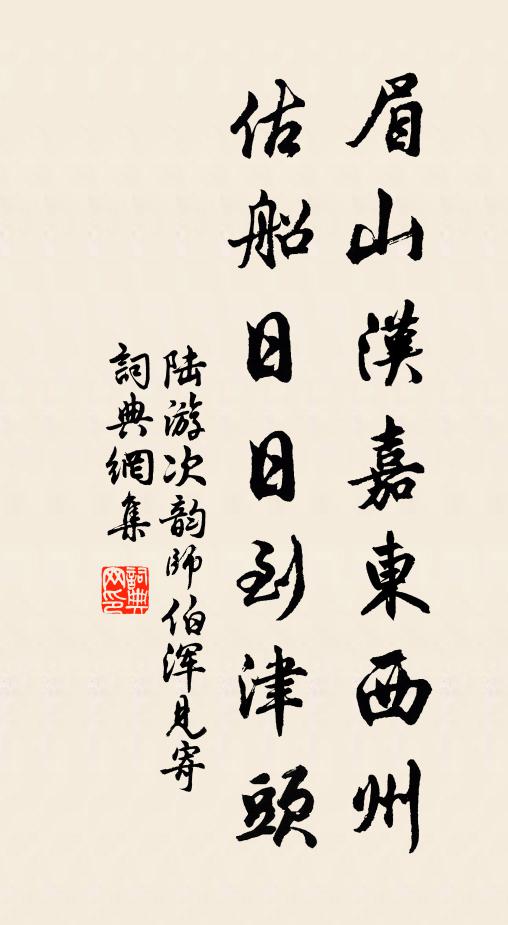 眉山漢嘉東西州
估船日日到津頭
陆游次韵師伯浑見寄
詞典網集
詞典網印